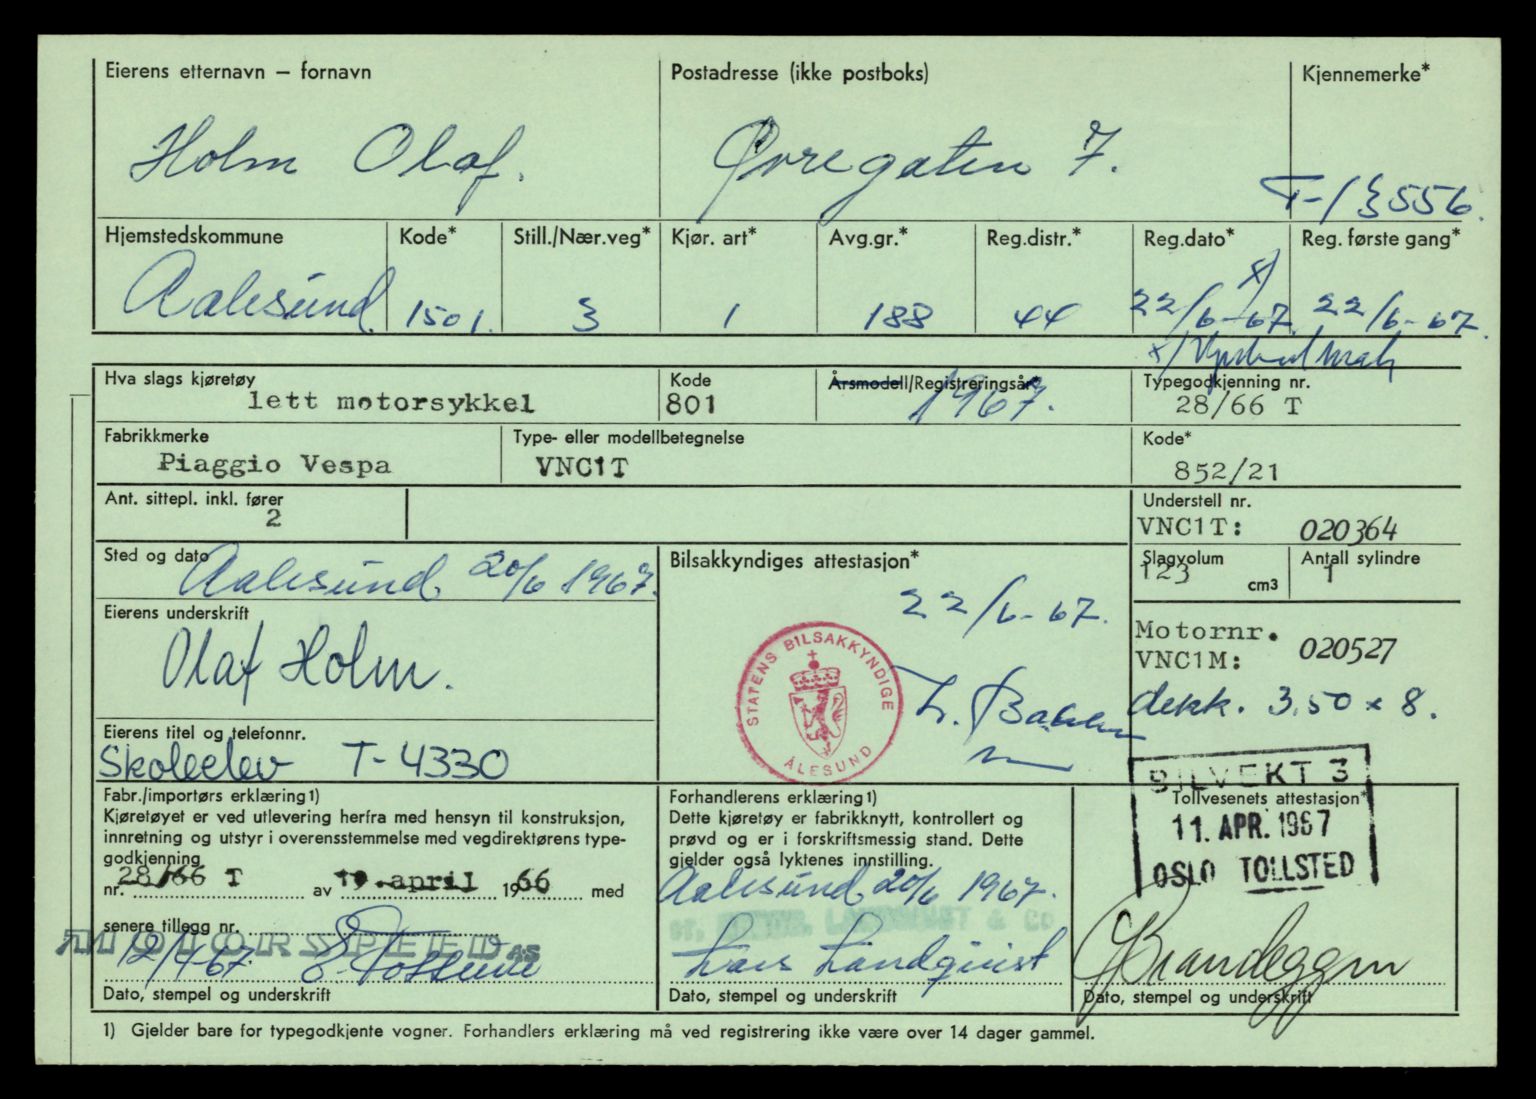 Eierens etternavn – fornavn
Holm Olaf.
Postadresse (ikke postboks)
Øvregaten 7.
Kjennemerke*
T-13556.
Hjemstedskommune
Aalesund.
Kode*
1501.
Still./Nær.veg*
3
Kjør. art*
1
Avg.gr.*
188
Reg.distr.*
44
Reg.dato*
x)
22/6-67.
Reg. første gang*
22/6-67.
Hva slags kjøretøy
lett motorsykkel
Kode
801
Årsmodell/Registreringsår*
1967.
Typegodkjenning nr.
28/66 T
Fabrikkmerke
Piaggio Vespa
Type- eller modellbetegnelse
VNC1T
Kode*
852/21
Ant. sittepl. inkl. fører
2
Understell nr.
VNC1T: 020364
Slagvolum
123
cm3
Antall sylindre
1
Sted og dato
Aalesund. 20/6 1967.
Eierens underskrift
Olaf Holm.
Eierens titel og telefonnr.
Skoleelev T-4330
Bilsakkyndiges attestasjon*
22/6-67.
STATENS BILSAKKYNDIGE
ÅLESUND
Motornr.
VNC1M: 020527
dekk. 3,50 x 8.
Fabr./importørs erklæring1)
Kjøretøyet er ved utlevering herfra med hensyn til konstruksjon,
innretning og utstyr i overensstemmelse med vegdirektørens type-
godkjenning
nr. 28/66 T av 19.april 1966 med
senere tillegg nr.
MOTORSPEED A.S
12/4 67
Dato, stempel og underskrift
Forhandlerens erklæring1)
Dette kjøretøy er fabrikknytt, kontrollert og
prøvd og er i forskriftsmessig stand. Dette
gjelder også lyktenes innstilling.
Aalesund 20/6 1967.
Lars Landqvist
Dato, stempel og underskrift
BILVEKT 3
Tollvesenets attestasjon*
11. APR. 1967
OSLO TOLLSTED
Dato, stempel og underskrift
1) Gjelder bare for typegodkjente vogner. Forhandlers erklæring må ved registrering ikke være over 14 dager gammel.